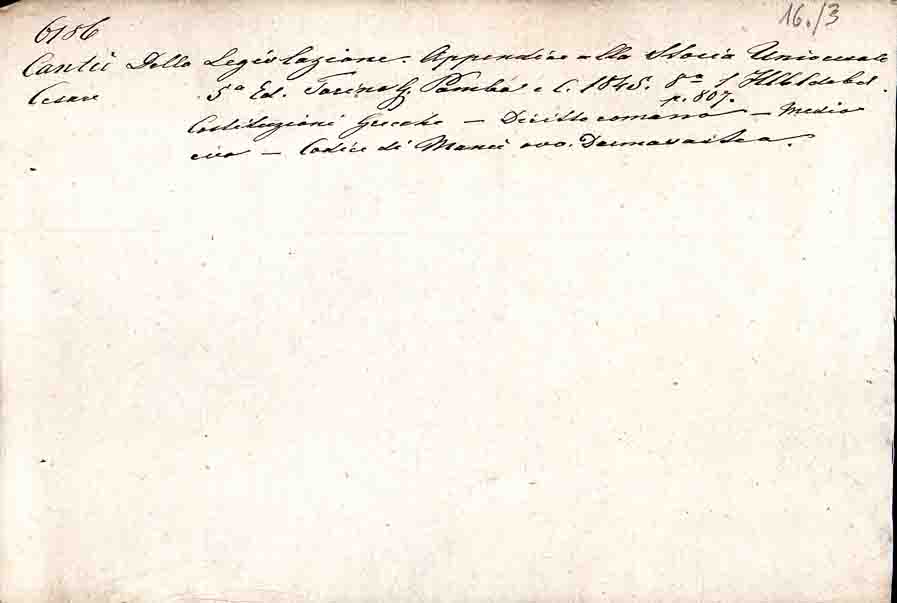 16./3
6186
Cantù Della Legislazione. Appendice alla Storia Universale
Cesare 5a Ed. Torino G. Pomba e C. 1845. 8° f
p. 807.
Costituzioni Greche – Diritto romano – Medio
evo – Codice di Manù ovv. Darmasastra.